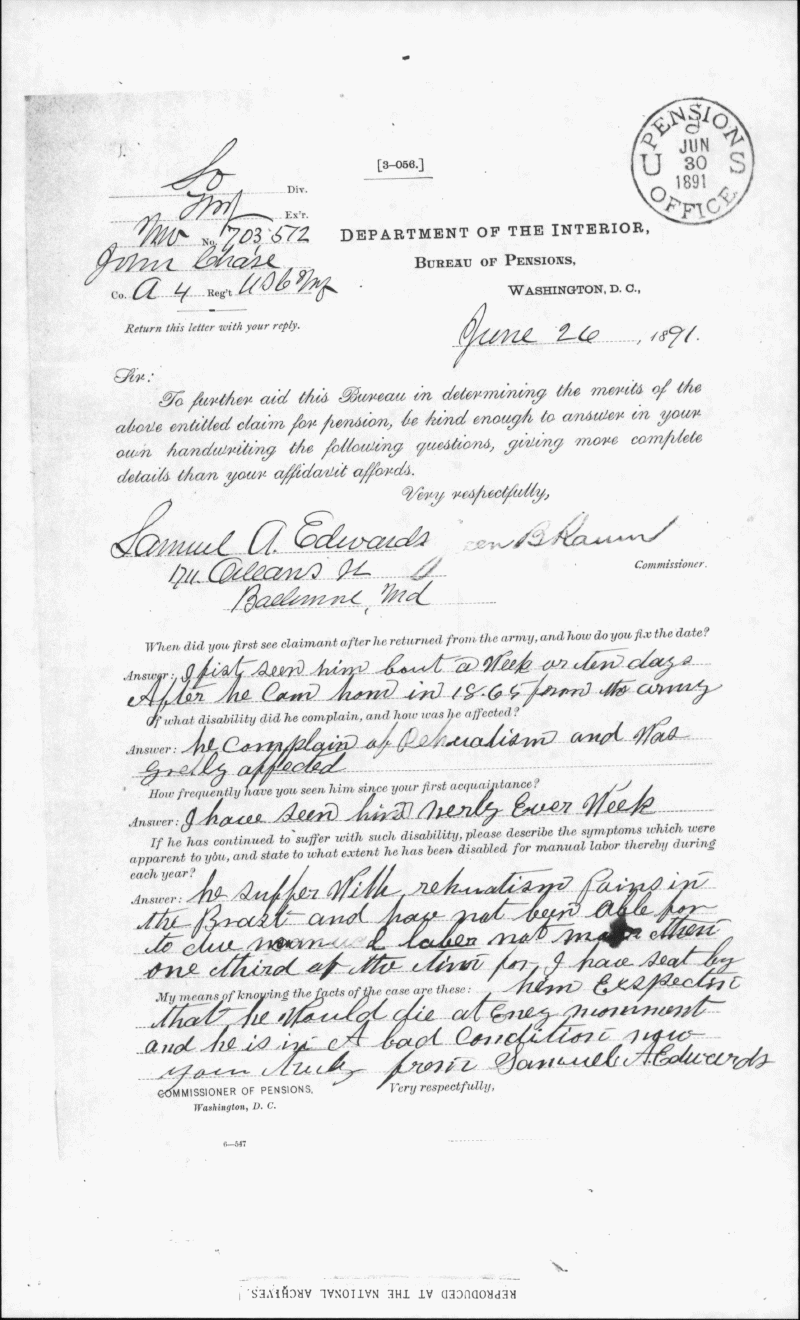 [3—056.]
U PENSIONS S
OFFICE
JUN
30
1891
So Div.
Ex'r.
No. 703,572
John Chase
Co. A 4 Reg't U S C Inf
Return this letter with your reply.
DEPARTMENT OF THE INTERIOR,
BUREAU OF PENSIONS,
WASHINGTON, D. C.,
June 26, 1891.
Sir:
To further aid this Bureau in determining the merits of the
above entitled claim for pension, be kind enough to answer in your
own handwriting the following questions, giving more complete
details than your affidavit affords.
Very respectfully,
Samuel A. Edwards
Commissioner.
1711 Orleans St
Baltimore, Md
When did you first see claimant after he returned from the army, and how do you fix the date?
Answer: I fist seen him bout a Week or ten days
After he Com hom in 1865 from the army
Of what disability did he complain, and how was he affected?
Answer: he Complain of Rehuatism and Was
Gretly affected
How frequently have you seen him since your first acquaintance?
Answer: I have seen him nerly Ever Week
If he has continued to suffer with such disability, please describe the symptoms which were
apparent to you, and state to what extent he has been disabled for manual labor thereby during
each year?
Answer: he suffer With rehuatism Pains in
the Brast and have not been able for
to due manual laber not more then
one third of the time for I have seat by
My means of knowing the facts of the case are these: him Exspecten
that he Would die at Eney momment
and he is in A bad Condition now
your truly from Samuel A Edwards
COMMISSIONER OF PENSIONS, Very respectfully,
Washington, D. C.
6—547
REPRODUCED AT THE NATIONAL ARCHIVES.